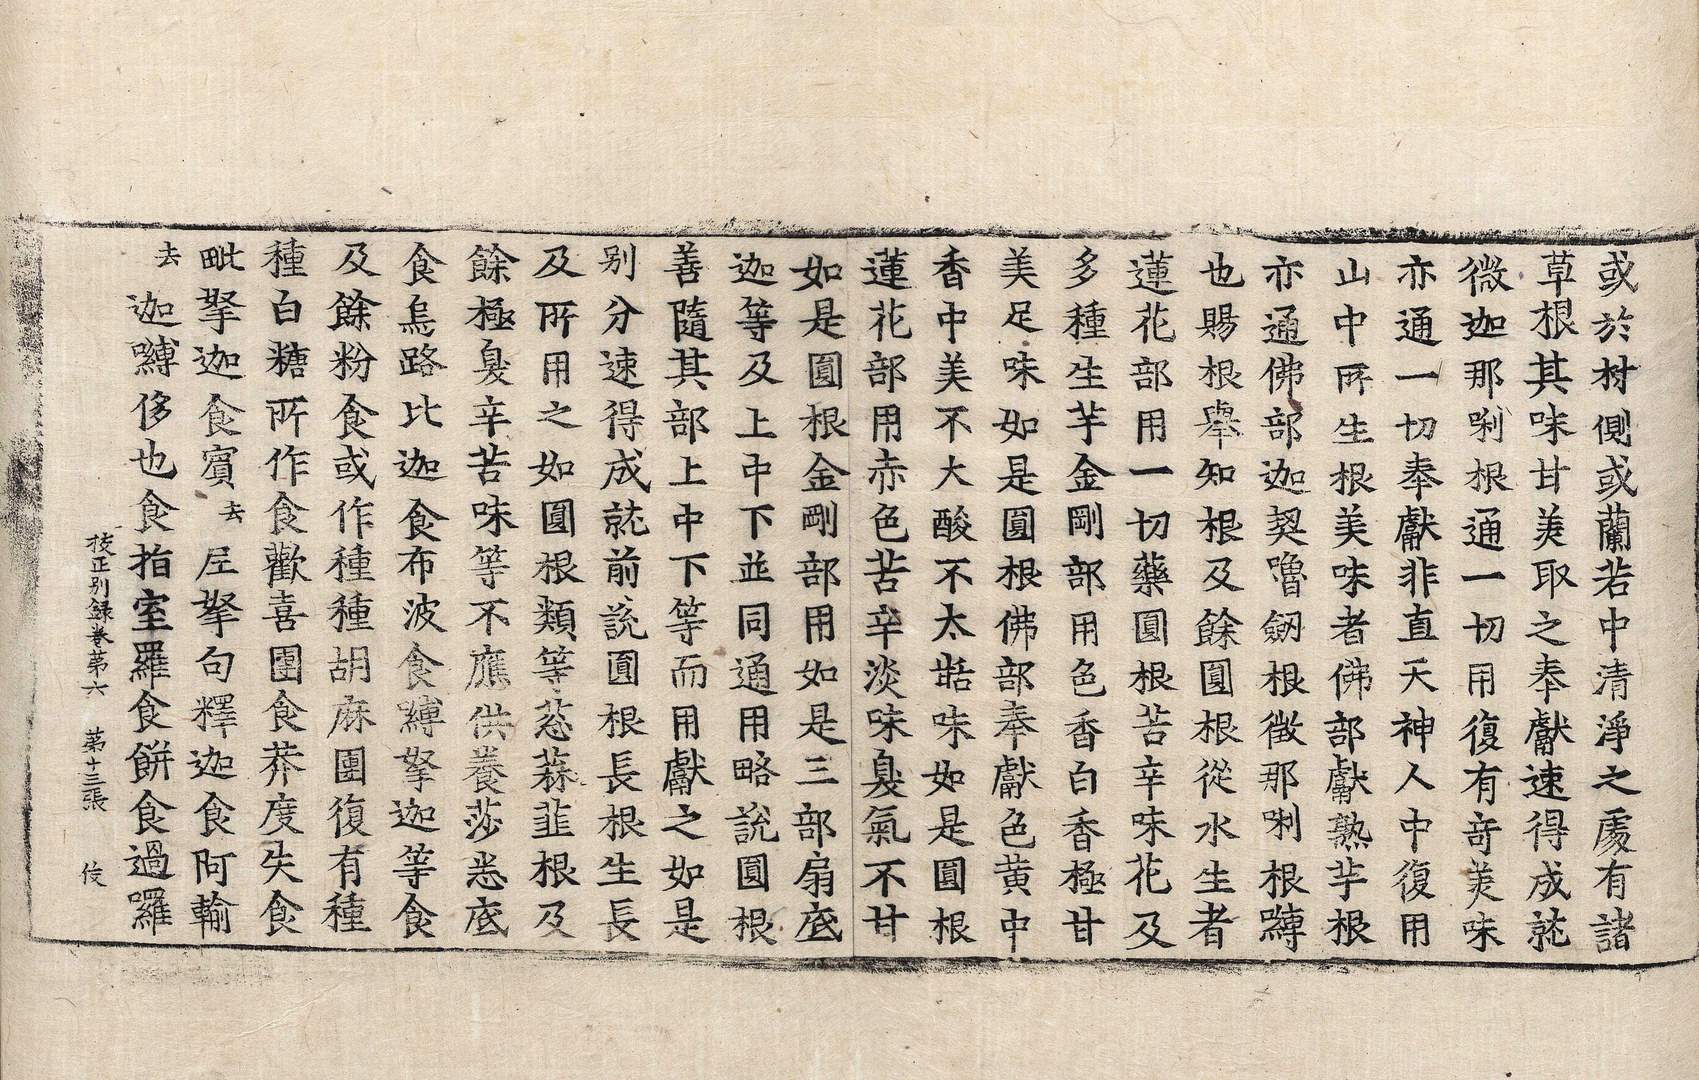 或於村側或蘭若中清淨之處有諸
草根其味甘美取之奉獻速得成就
微迦那唎根通一切用復有奇美味
亦通一切奉獻非直天神人中復用
山中所生根美味者佛部獻熟芋根
亦通佛部迦契嚕劒根徵那唎根嚩
也賜根舉知根及餘圓根從水生者
蓮花部用一切藥圓根苦辛味花及
多種生芋金剛部用色香白香極甘
美足味如是圓根佛部奉獻色黃中
香中美不大酸不太甛味如是圓根
蓮花部用赤色苦辛淡味臭氣不甘
如是圓根金剛部用如是三部扇底
迦等及上中下並同通用略說圓根
善隨其部上中下等而用獻之如是
別分速得成就前說圓根長根生長
及所用之如圓根類等葱蒜韮根及
餘極臭辛苦味等不應供養莎悉底
食烏路比迦食布波食嚩拏迦等食
及餘粉食或作種種胡麻團復有種
種白糖所作食歡喜團食莽度失食
毗拏迦食賓去㞐拏句釋迦食阿輸
去迦嚩侈也食指室羅食餅食過囉
挍正別録卷第六 第十三張 伎